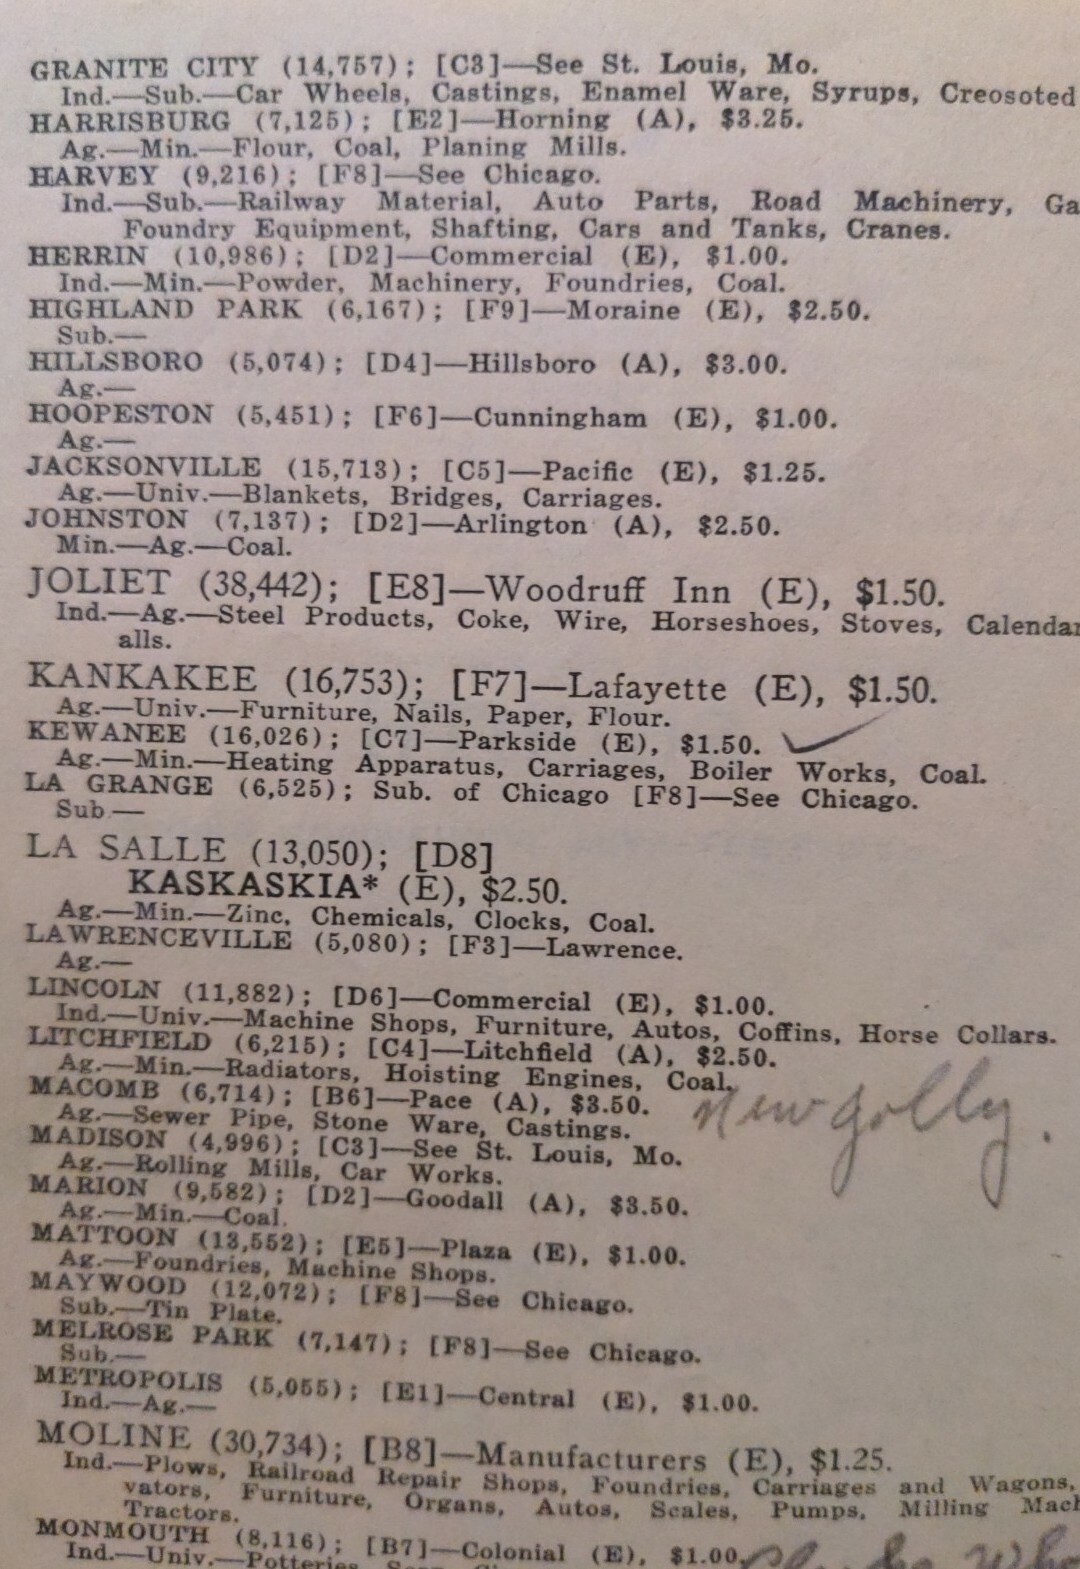 GRANITE CITY (14,757); [C3]—See St. Louis, Mo.
Ind.—Sub.—Car Wheels, Castings, Enamel Ware, Syrups, Creosoted
HARRISBURG (7,125); [E2]—Horning (A), $3.25.
Ag.—Min.—Flour, Coal, Planing Mills.
HARVEY (9,216); [F8]—See Chicago.
Ind.—Sub.—Railway Material, Auto Parts, Road Machinery, Ga
Foundry Equipment, Shafting, Cars and Tanks, Cranes.
HERRIN (10,986); [D2]—Commercial (E), $1.00.
Ind.—Min.—Powder, Machinery, Foundries, Coal.
HIGHLAND PARK (6,167); [F9]—Moraine (E), $2.50.
Sub.—
HILLSBORO (5,074); [D4]—Hillsboro (A), $3.00.
Ag.—
HOOPESTON (5,451); [F6]—Cunningham (E), $1.00.
Ag.—
JACKSONVILLE (15,713); [C5]—Pacific (E), $1.25.
Ag.—Univ.—Blankets, Bridges, Carriages.
JOHNSTON (7,137); [D2]—Arlington (A), $2.50.
Min.—Ag.—Coal.
JOLIET (38,442); [E8]—Woodruff Inn (E), $1.50.
Ind.—Ag.—Steel Products, Coke, Wire, Horseshoes, Stoves, Calendar
alls.
KANKAKEE (16,753); [F7]—Lafayette (E), $1.50.
Ag.—Univ.—Furniture, Nails, Paper, Flour.
KEWANEE (16,026); [C7]—Parkside (E), $1.50.
Ag.—Min.—Heating Apparatus, Carriages, Boiler Works, Coal.
LA GRANGE (6,525); Sub. of Chicago [F8]—See Chicago.
Sub.—
LA SALLE (13,050); [D8]
KASKASKIA* (E), $2.50.
Ag.—Min.—Zinc, Chemicals, Clocks, Coal.
LAWRENCEVILLE (5,080); [F3]—Lawrence.
Ag.—
LINCOLN (11,882); [D6]—Commercial (E), $1.00.
Ind.—Univ.—Machine Shops, Furniture, Autos, Coffins, Horse Collars.
LITCHFIELD (6,215); [C4]—Litchfield (A), $2.50.
Ag.—Min.—Radiators, Hoisting Engines, Coal.
MACOMB (6,714); [B6]—Pace (A), $3.50. New golly.
Ag.—Sewer Pipe, Stone Ware, Castings.
MADISON (4,996); [C3]—See St. Louis, Mo.
Ag.—Rolling Mills, Car Works.
MARION (9,582); [D2]—Goodall (A), $3.50.
Ag.—Min.—Coal.
MATTOON (13,552); [E5]—Plaza (E), $1.00.
Ag.—Foundries, Machine Shops.
MAYWOOD (12,072); [F8]—See Chicago.
Sub.—Tin Plate.
MELROSE PARK (7,147); [F8]—See Chicago.
Sub.—
METROPOLIS (5,055); [E1]—Central (E), $1.00.
Ind.—Ag.—
MOLINE (30,734); [B8]—Manufacturers (E), $1.25.
Ind.—Plows, Railroad Repair Shops, Foundries, Carriages and Wagons,
vators, Furniture, Organs, Autos, Scales, Pumps, Milling Mach
Tractors.
MONMOUTH (8,116); [B7]—Colonial (E), $1.00.
Ind.—Univ.—Potteries,